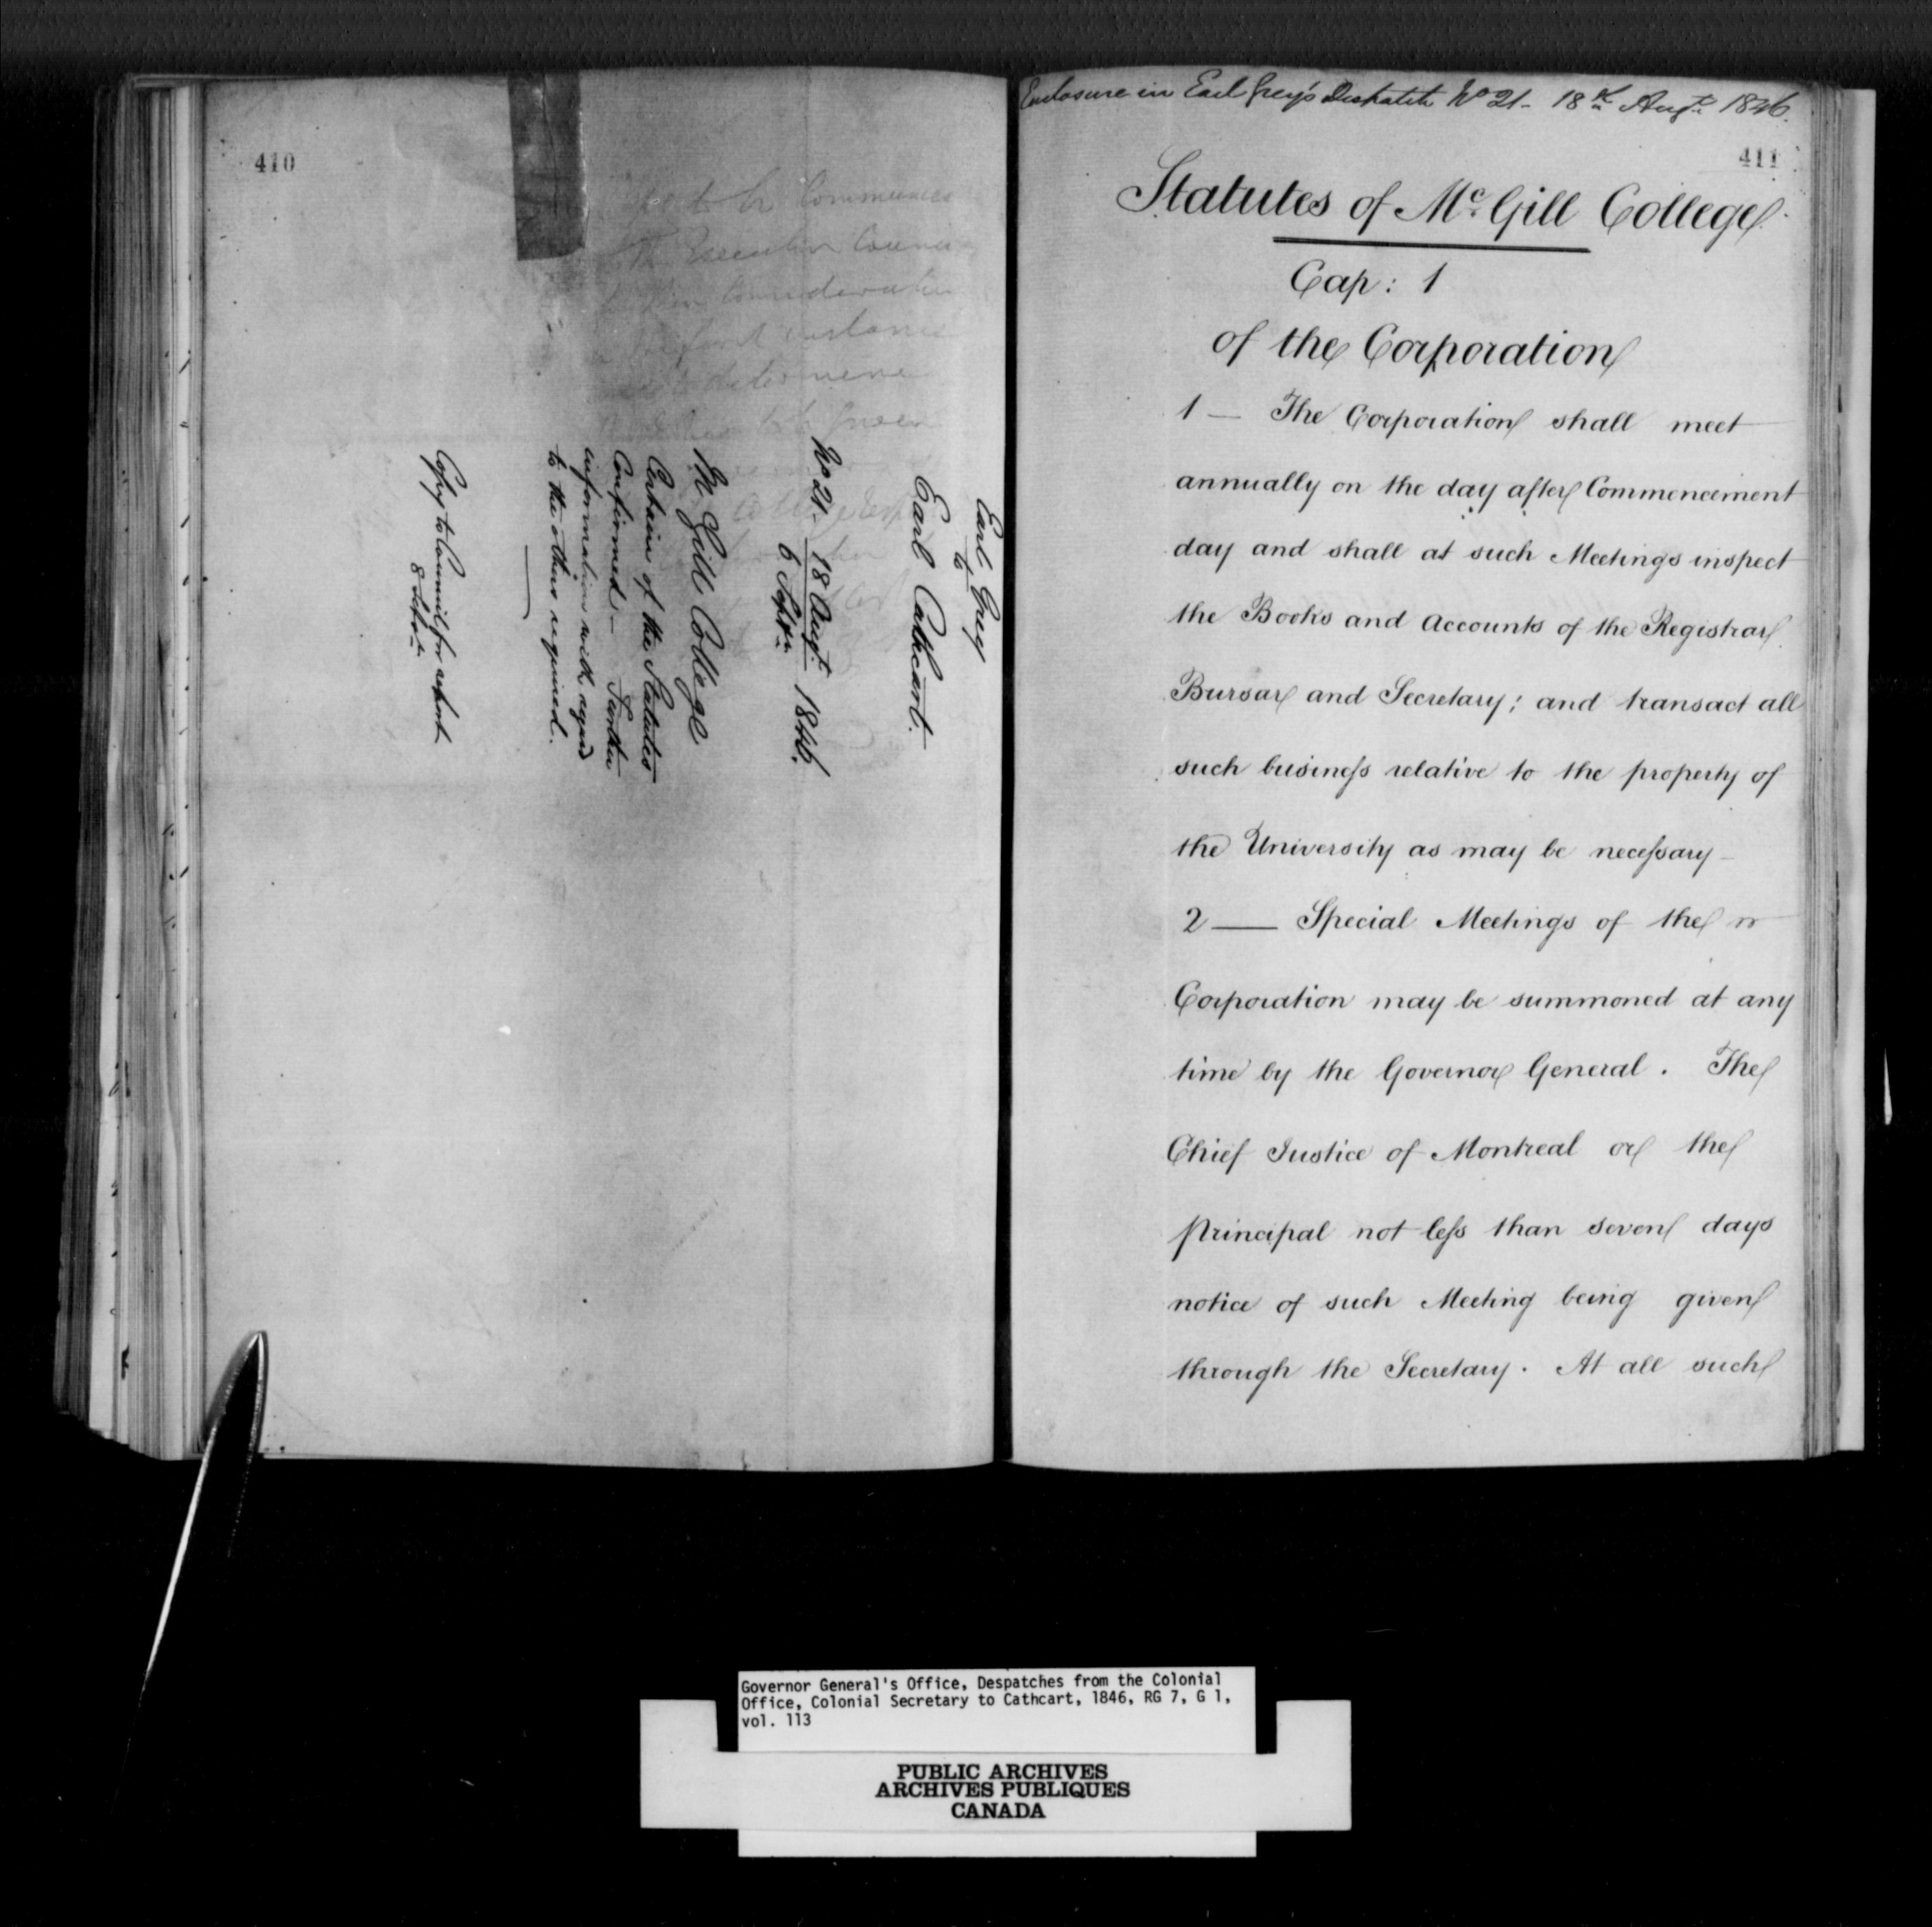 410
to be Communica
the Executive Counci
Consideration
first instance
determine
Earl Grey
to
Earl Cathcart.
No 21. 18 Augt. 1846.
6 Septr.
McGill College
Certain of the Statutes
Confirmed — Further
information with regard
to the others required.
Copy to Council for report
8
Enclosure in Earl Grey's Despatch No 21 - 18th Augt. 1846.
411
Statutes of McGill College.
Cap: 1
of the Corporation
1 — The Corporation shall meet
annually on the day after Commencement
day and shall at such Meetings inspect
the Books and Accounts of the Registrar
Bursar and Secretary; and transact all
such business relative to the property of
the University as may be necessary —
2 — Special Meetings of the
Corporation may be summoned at any
time by the Governor General. The
Chief Justice of Montreal or the
Principal not less than seven days
notice of such Meeting being given
through the Secretary. At all such
Governor General's Office, Despatches from the Colonial
Office, Colonial Secretary to Cathcart, 1846, RG 7, G 1,
vol. 113
PUBLIC ARCHIVES
ARCHIVES PUBLIQUES
CANADA